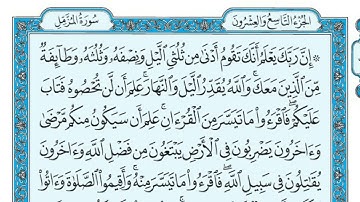 سُورَةُ المُزَّمِّلِ
الجُزْءُ التَّاسِعُ وَالعِشْرُونَ
۞ إِنَّ رَبَّكَ يَعْلَمُ أَنَّكَ تَقُومُ أَدْنَىٰ مِن ثُلُثَيِ ٱلَّيْلِ وَنِصْفَهُۥ وَثُلُثَهُۥ وَطَآئِفَةٌ
مِّنَ ٱلَّذِينَ مَعَكَۚ وَٱللَّهُ يُقَدِّرُ ٱلَّيْلَ وَٱلنَّهَارَۚ عَلِمَ أَن لَّن تُحْصُوهُ فَتَابَ
عَلَيْكُمْۖ فَٱقْرَءُواْ مَا تَيَسَّرَ مِنَ ٱلْقُرْءَانِۚ عَلِمَ أَن سَيَكُونُ مِنكُم مَّرْضَىٰ
وَءَاخَرُونَ يَضْرِبُونَ فِى ٱلْأَرْضِ يَبْتَغُونَ مِن فَضْلِ ٱللَّهِ وَءَاخَرُونَ
يُقَٰتِلُونَ فِى سَبِيلِ ٱللَّهِۖ فَٱقْرَءُواْ مَا تَيَسَّرَ مِنْهُۚ وَأَقِيمُواْ ٱلصَّلَوٰةَ وَءَاتُواْ